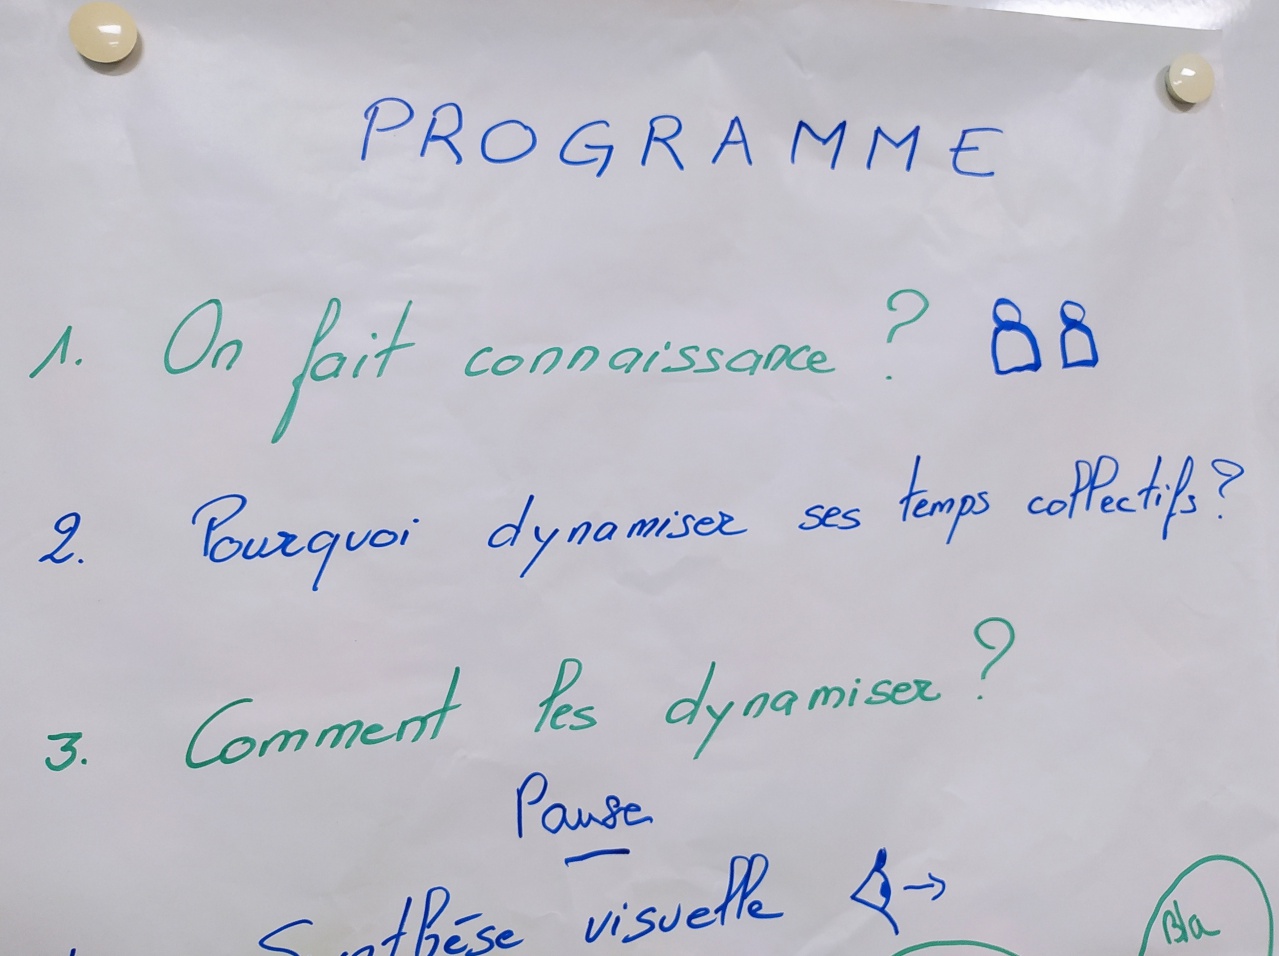 PROGRAMME
1. On fait connaissance ?
2. Pourquoi dynamiser ses temps collectifs ?
3. Comment les dynamiser ?
Pause
Synthèse visuelle
Bla